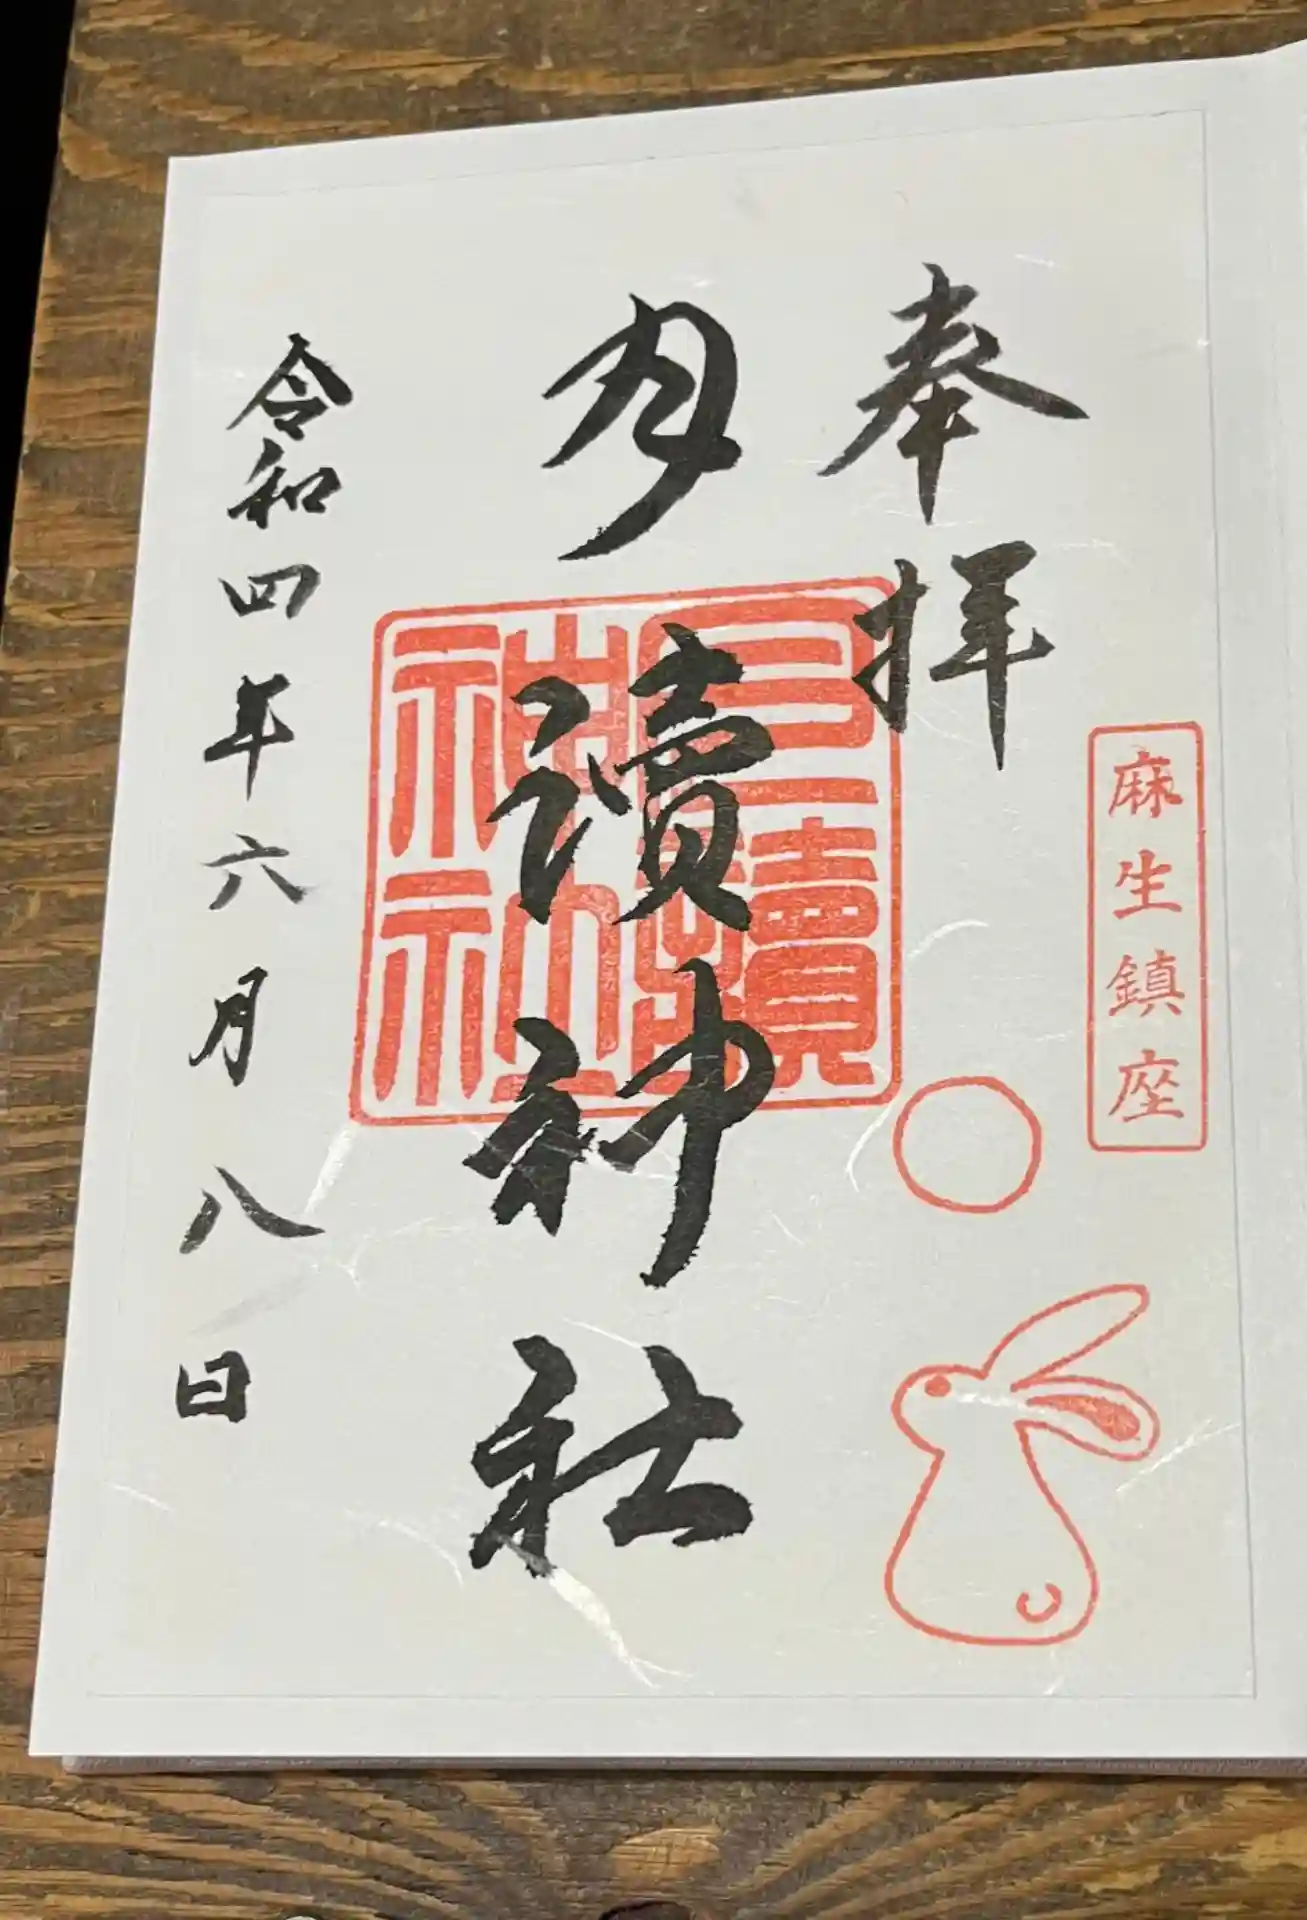 麻生鎮座
奉拝
月讀神社
月讀神社
令和四年六月八日